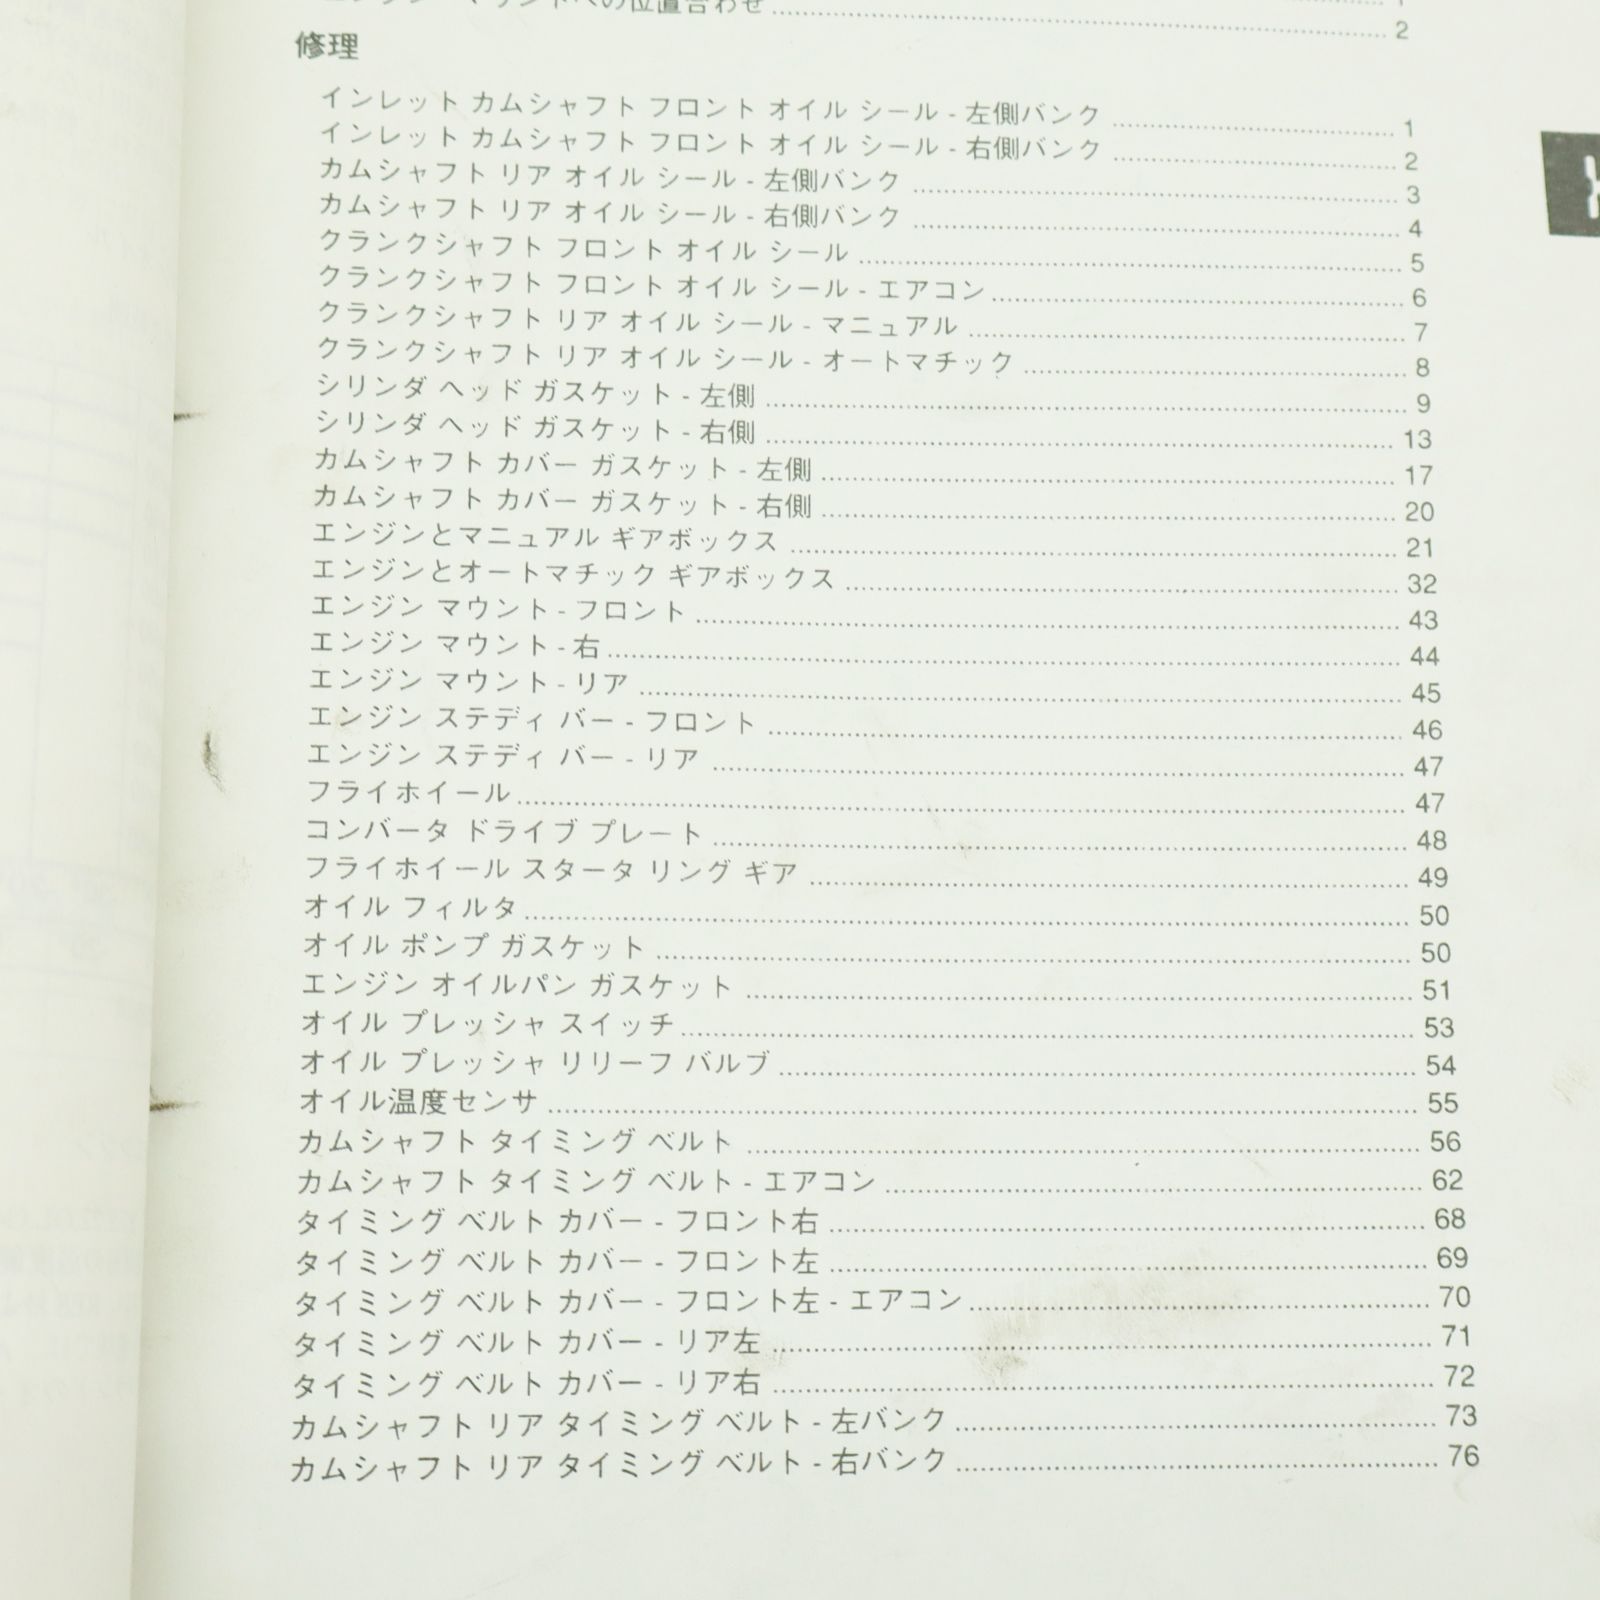 位置合わせ 2
修理
インレット カムシャフト フロント オイル シール - 左側バンク 1
インレット カムシャフト フロント オイル シール - 右側バンク 2
カムシャフト リア オイル シール - 左側バンク 3
カムシャフト リア オイル シール - 右側バンク 4
クランクシャフト フロント オイル シール 5
クランクシャフト フロント オイル シール - エアコン 6
クランクシャフト リア オイル シール - マニュアル 7
クランクシャフト リア オイル シール - オートマチック 8
シリンダ ヘッド ガスケット - 左側 9
シリンダ ヘッド ガスケット - 右側 13
カムシャフト カバー ガスケット - 左側 17
カムシャフト カバー ガスケット - 右側 20
エンジンとマニュアル ギアボックス 21
エンジンとオートマチック ギアボックス 32
エンジン マウント - フロント 43
エンジン マウント - 右 44
エンジン マウント - リア 45
エンジン ステディ バー - フロント 46
エンジン ステディ バー - リア 47
フライホイール 47
コンバータ ドライブ プレート 48
フライホイール スタータ リング ギア 49
オイル フィルタ 50
オイル ポンプ ガスケット 50
エンジン オイルパン ガスケット 51
オイル プレッシャ スイッチ 53
オイル プレッシャ リリーフ バルブ 54
オイル温度センサ 55
カムシャフト タイミング ベルト 56
カムシャフト タイミング ベルト - エアコン 62
タイミング ベルト カバー - フロント右 68
タイミング ベルト カバー - フロント左 69
タイミング ベルト カバー - フロント左 - エアコン 70
タイミング ベルト カバー - リア左 71
タイミング ベルト カバー - リア右 72
カムシャフト リア タイミング ベルト - 左バンク 73
カムシャフト リア タイミング ベルト - 右バンク 76